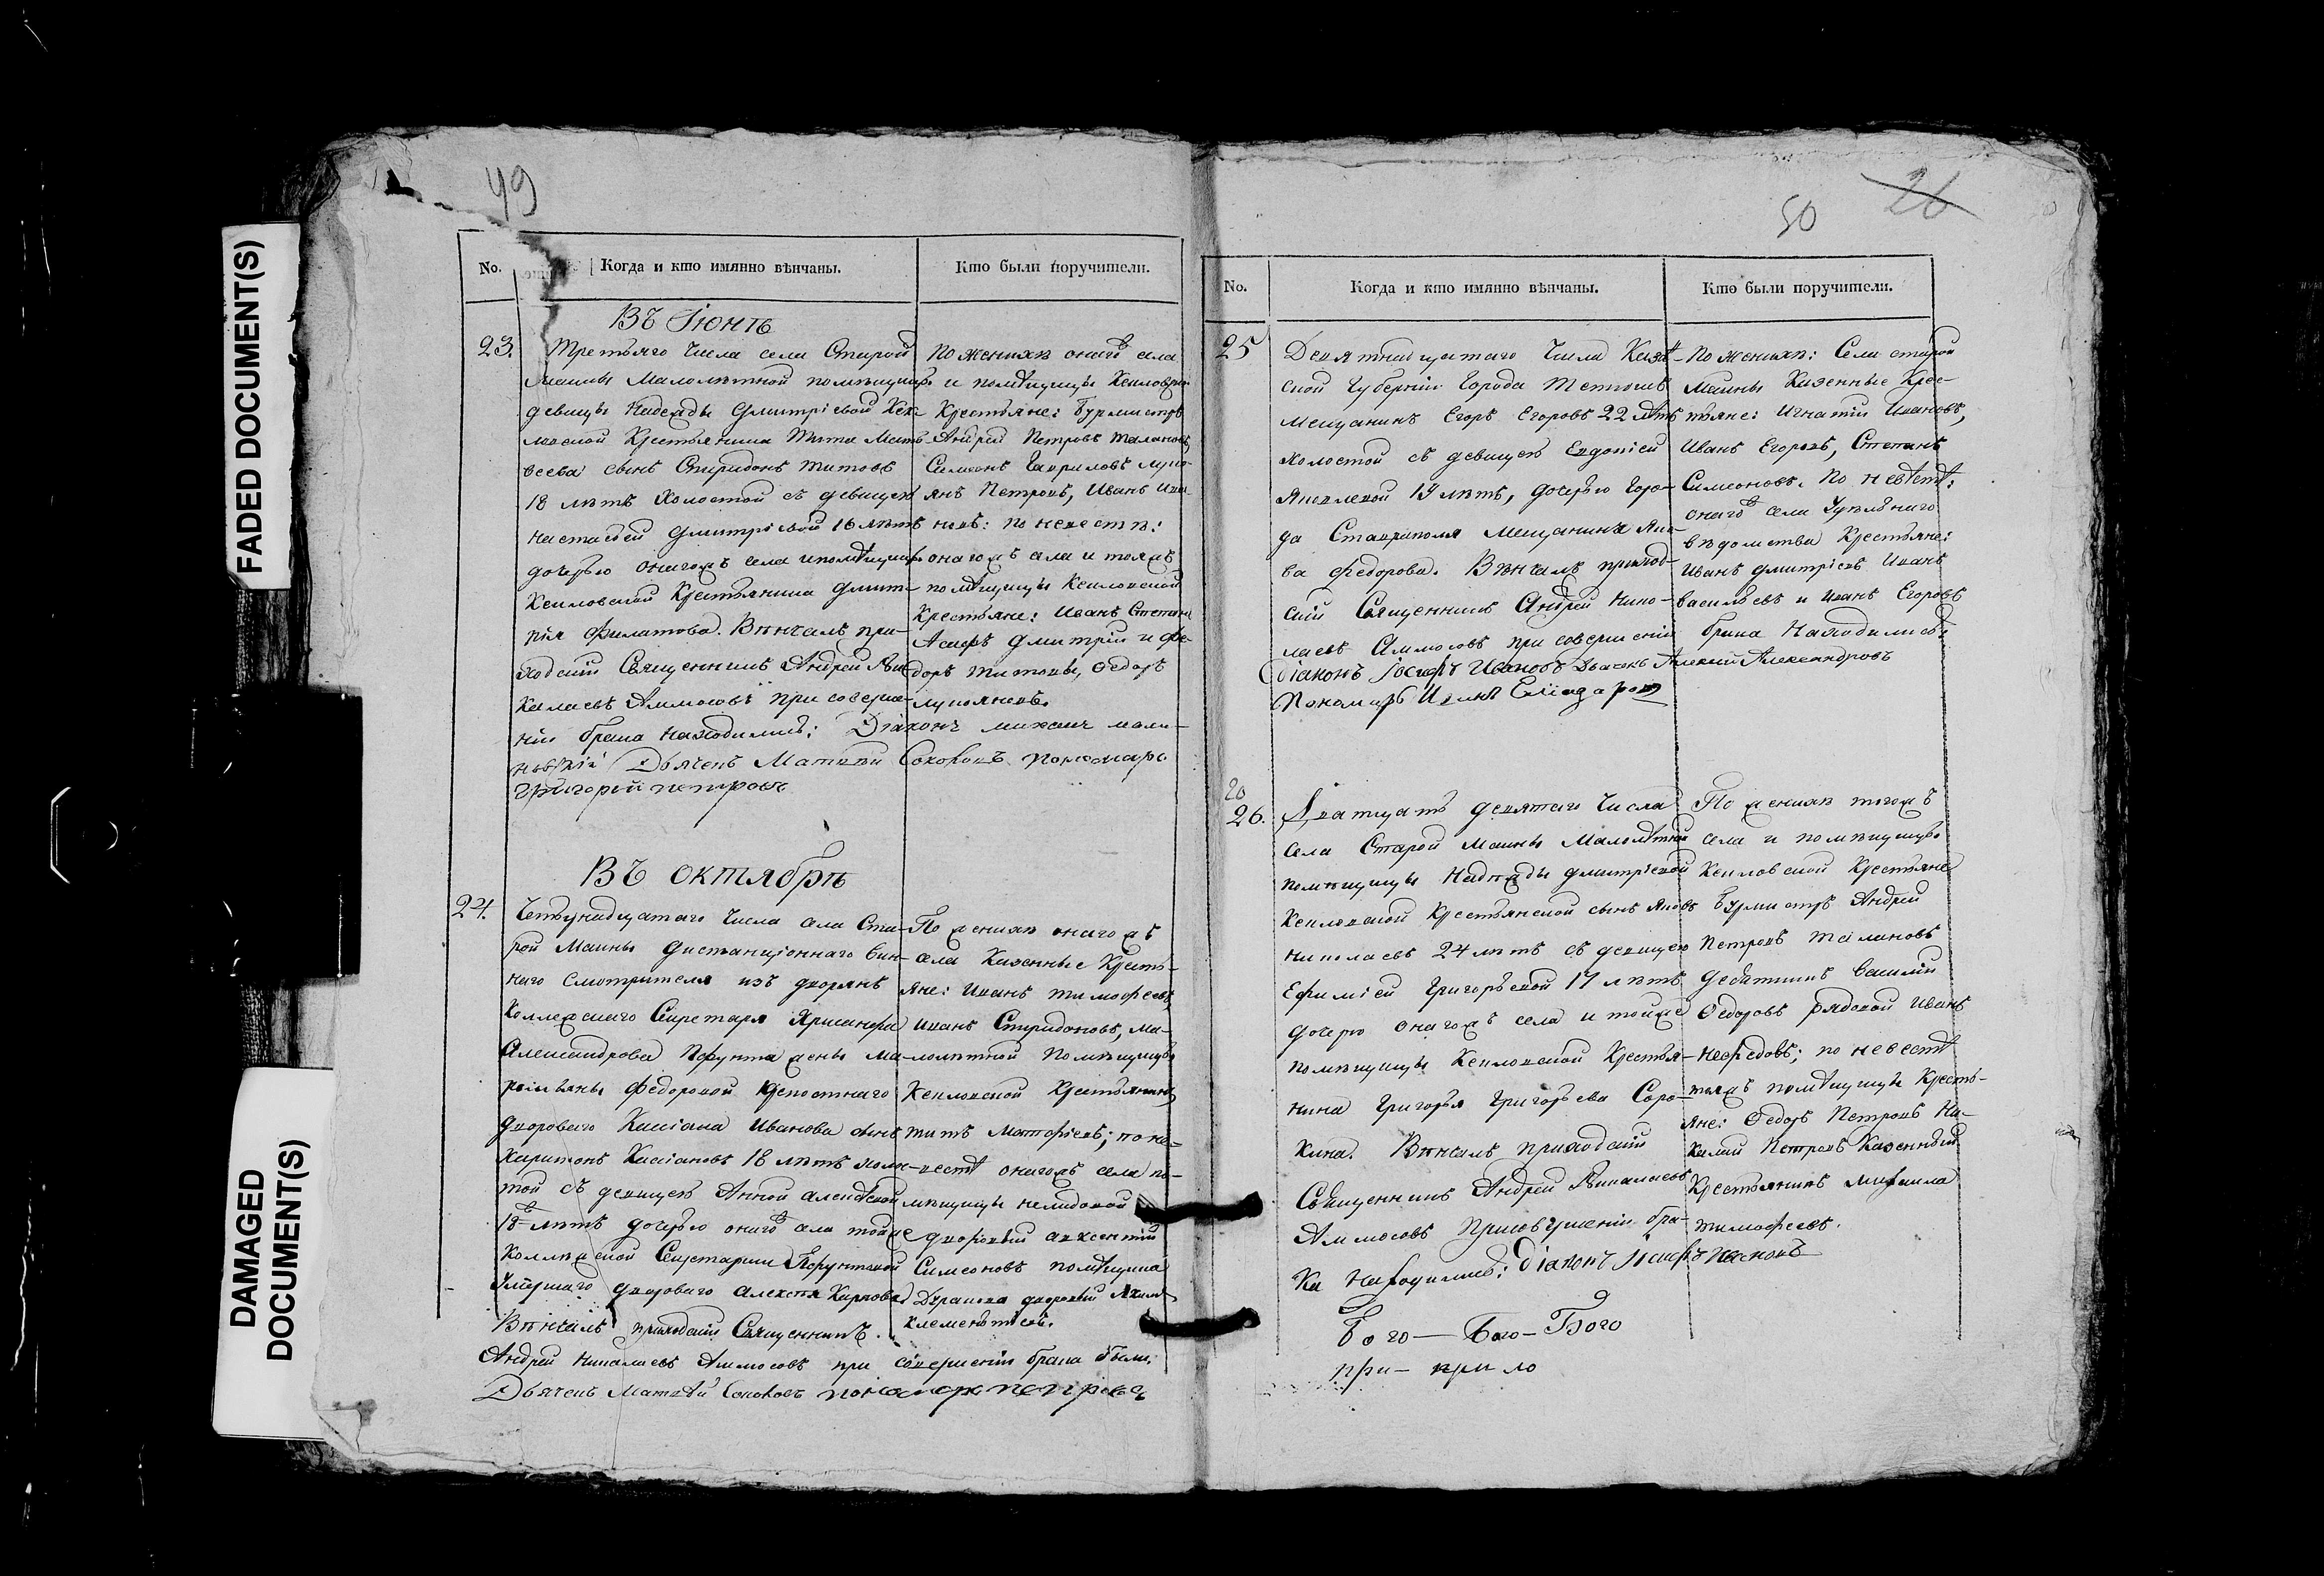 FADED DOCUMENT(S)
DAMAGED
DOCUMENT(S)
49
No.
Когда и кто имянно вѣнчаны.
Кто были поручители.
Въ Іюнѣ
23.
Третьяго Числа села Старой
Маины Малолѣтной помѣщицы
девицы Надежды Дмитріевой
Крестьянина Тита Мат-
веева сынъ Спиридонъ Титовъ
18 лѣтъ холостой съ девицею
Настасьей Дмитріевой 16 лѣтъ
дочерью онагожъ села и помѣщицы
Крестьянина Дмит-
рія Филатова. Вѣнчалъ при-
ходскій Священникъ Андрей Ни-
колаевъ Аммосовъ при соверше-
ніи брака находились: Діаконъ Михаилъ
Дьячекъ Матвей Соколовъ пономарь
Григорей петровъ
По женихѣ онаго села
и помѣщицы
Крестьяне: Бурмистръ
Андрей Петровъ Талановъ,
Симеонъ Гавриловъ Лукь-
янъ Петровъ, Иванъ Ива-
новъ: по невестѣ:
онагожъ села и тояжъ
помѣщицы
Крестьяне: Иванъ Степановъ
Дмитрій и Фе-
доръ Титовы, Федоръ
Лукояновъ.
Въ октябрѣ
24.
Четырнадцатаго Числа села Ста-
рой Маины Дистанціоннаго Вин-
наго Смотрителя изъ дворянъ
Коллежскаго Секретаря
Александрова жены Ма-
Федоровой крепостнаго
двороваго Касіана Иванова сынъ
Харитонъ Касіановъ 18 лѣтъ холос-
той съ девицею Анной Алексѣевой
18 лѣтъ дочерью онаго села тойже
Умершаго двороваго Алексѣя Карпова
Вѣнчалъ приходскій Священникъ
Андрей Николаевъ Аммосовъ при совершеніи брака были:
Дьячекъ Матвей Соколовъ пономарь петровъ
По женихѣ онагожъ
села Казенные Кресть-
яне: Иванъ Тимофеевъ,
Иванъ Спиридоновъ, Ма-
лолѣтной помѣщицы
Крестьянинъ
Титъ Матфеевъ; по не-
вестѣ онагожъ села по-
мѣщицы
дворовый Авксентій
Симеоновъ помѣщика
дворовый
Клементіевъ.
50
26
No.
Когда и кто имянно вѣнчаны.
Кто были поручители.
25
Девятнадцатаго Числа Казан-
ской Губерніи Города Тетюшъ
мещанинъ Егоръ Егоровъ 22 лѣтъ
холостой съ девицей Евдокіей
Яковлевой 19 лѣтъ, дочерью Горо-
да Ставрополя мещанина Яко-
ва Федорова. Вѣнчалъ приход-
скій Священникъ Андрей Нико-
лаевъ Аммосовъ при совершеніи брака находились:
Діаконъ Іосифъ Ивановъ Дьячекъ Алексій Александровъ
Пономарь Илья
По женихѣ: Села Старой
Маины Казенные Крес-
тьяне: Игнатій Ивановъ,
Иванъ Егоровъ, Степанъ
Симеоновъ. По невѣстѣ:
онаго села Удѣлнаго
вѣдомства Крестьяне:
Иванъ Дмитріевъ Иванъ
Васильевъ и Иванъ Егоровъ
20
26.
Дватцать девятаго Числа
Села Старой Маины Малолѣтной
помѣщицы Надежды Дмитріевой
Крестьянской сынъ Яковъ
Николаевъ 24 лѣтъ съ девицею
Ефиміей Григорьевой 17 лѣтъ
дочерю онагожъ села и тойже
помѣщицы Крестья-
нина Григорья Григорьева Соро-
кина. Вѣнчалъ приходскій
Священникъ Андрей Николаевъ
Аммосовъ при совершеніи бра-
ка находились: Діаконъ Іосифъ Ивановъ
По женихѣ тогожъ
села и помѣщицы
Крестьяне
Бурмистръ Андрей
Петровъ Талановъ
Десятникъ Василій
Федоровъ рядовой Иванъ
Нефедовъ; по невестѣ
тояжъ помѣщицы Кресть-
яне: Федоръ Петровъ
Петровъ Казенный
Крестьянинъ Михаила
Тимофеевъ.
Бого— Бого— Бого
при— при ло